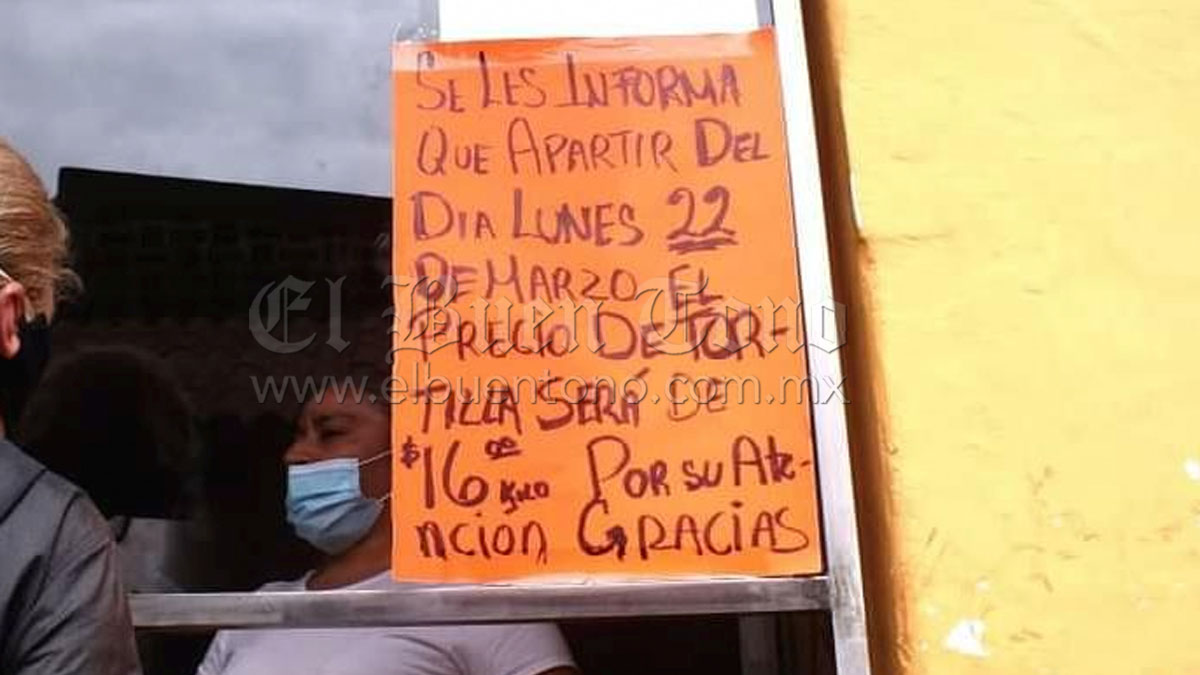 SE LES INFORMA
QUE APARTIR DEL
DIA LUNES 22
DE MARZO EL
PRECIO DE TOR-
TILLA SERÁ DE
$16.00 KILO POR SU ATE-
NCION GRACIAS
El Buen Tono
www.elbuentono.com.mx